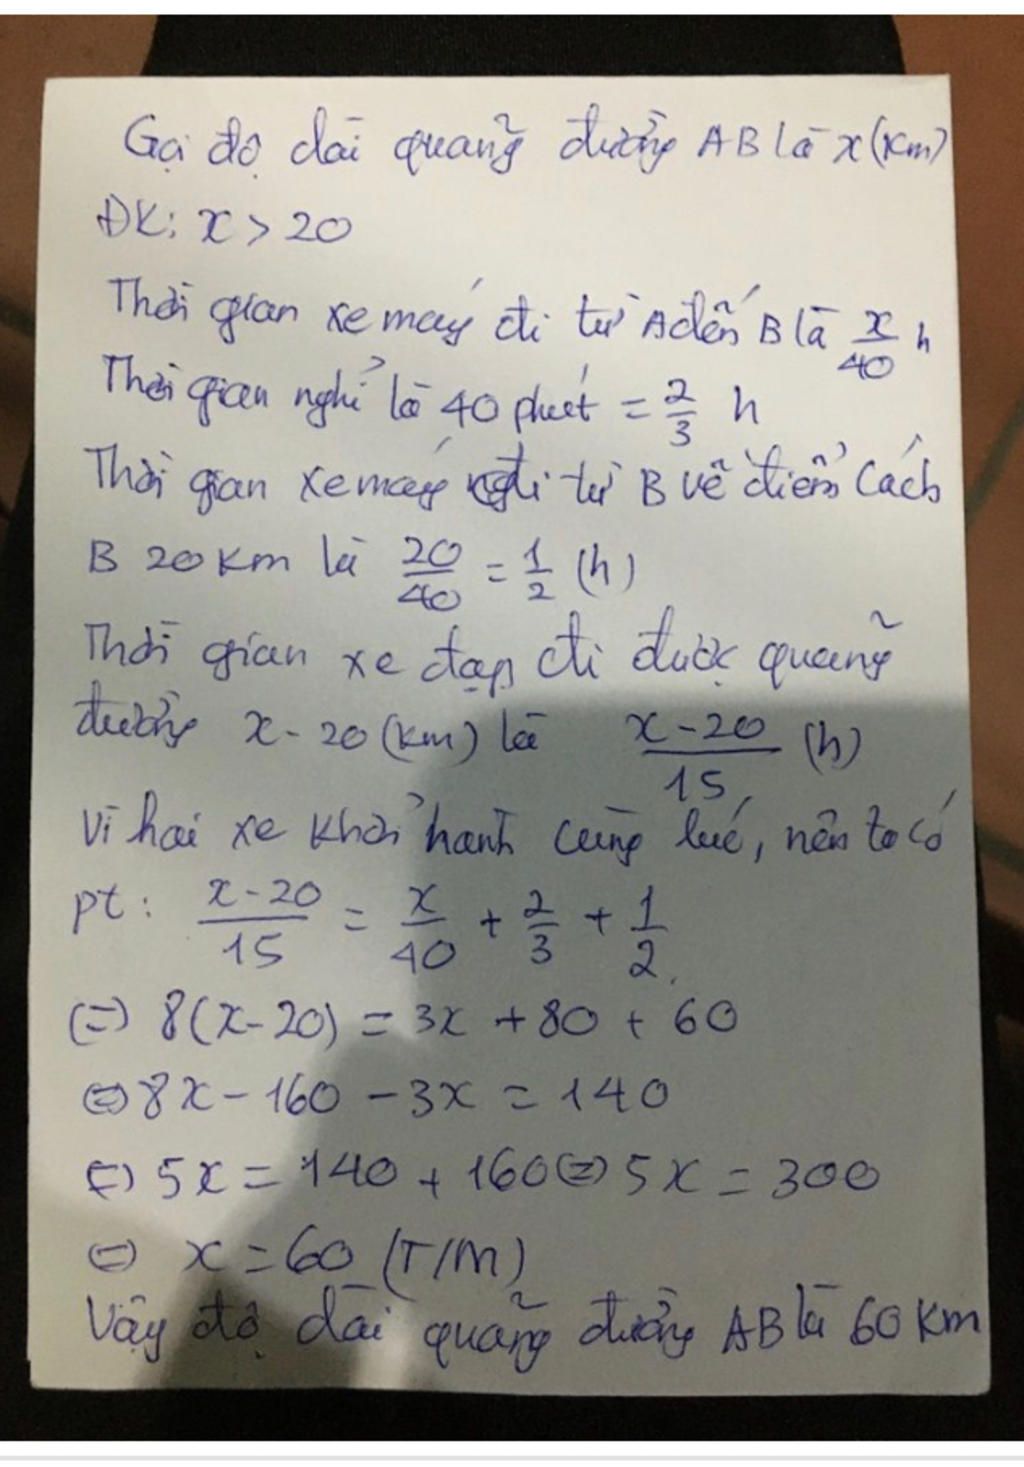 Gọi độ dài quãng đường AB là x (km)
ĐK: x > 20
Thời gian xe máy đi từ A đến B là x/40 h
Thời gian nghỉ là 40 phút = 2/3 h
Thời gian xe máy đi từ B về điểm cách
B 20 km là 20/40 = 1/2 (h)
Thời gian xe đạp đi được quãng
đường x - 20 (km) là x-20/15 (h)
Vì hai xe khởi hành cùng lúc, nên ta có
pt: x-20/15 = x/40 + 2/3 + 1/2
(=) 8(x-20) = 3x + 80 + 60
(=) 8x - 160 - 3x = 140
(=) 5x = 140 + 160 (=) 5x = 300
(=) x = 60 (T/M)
Vậy độ dài quãng đường AB là 60 km